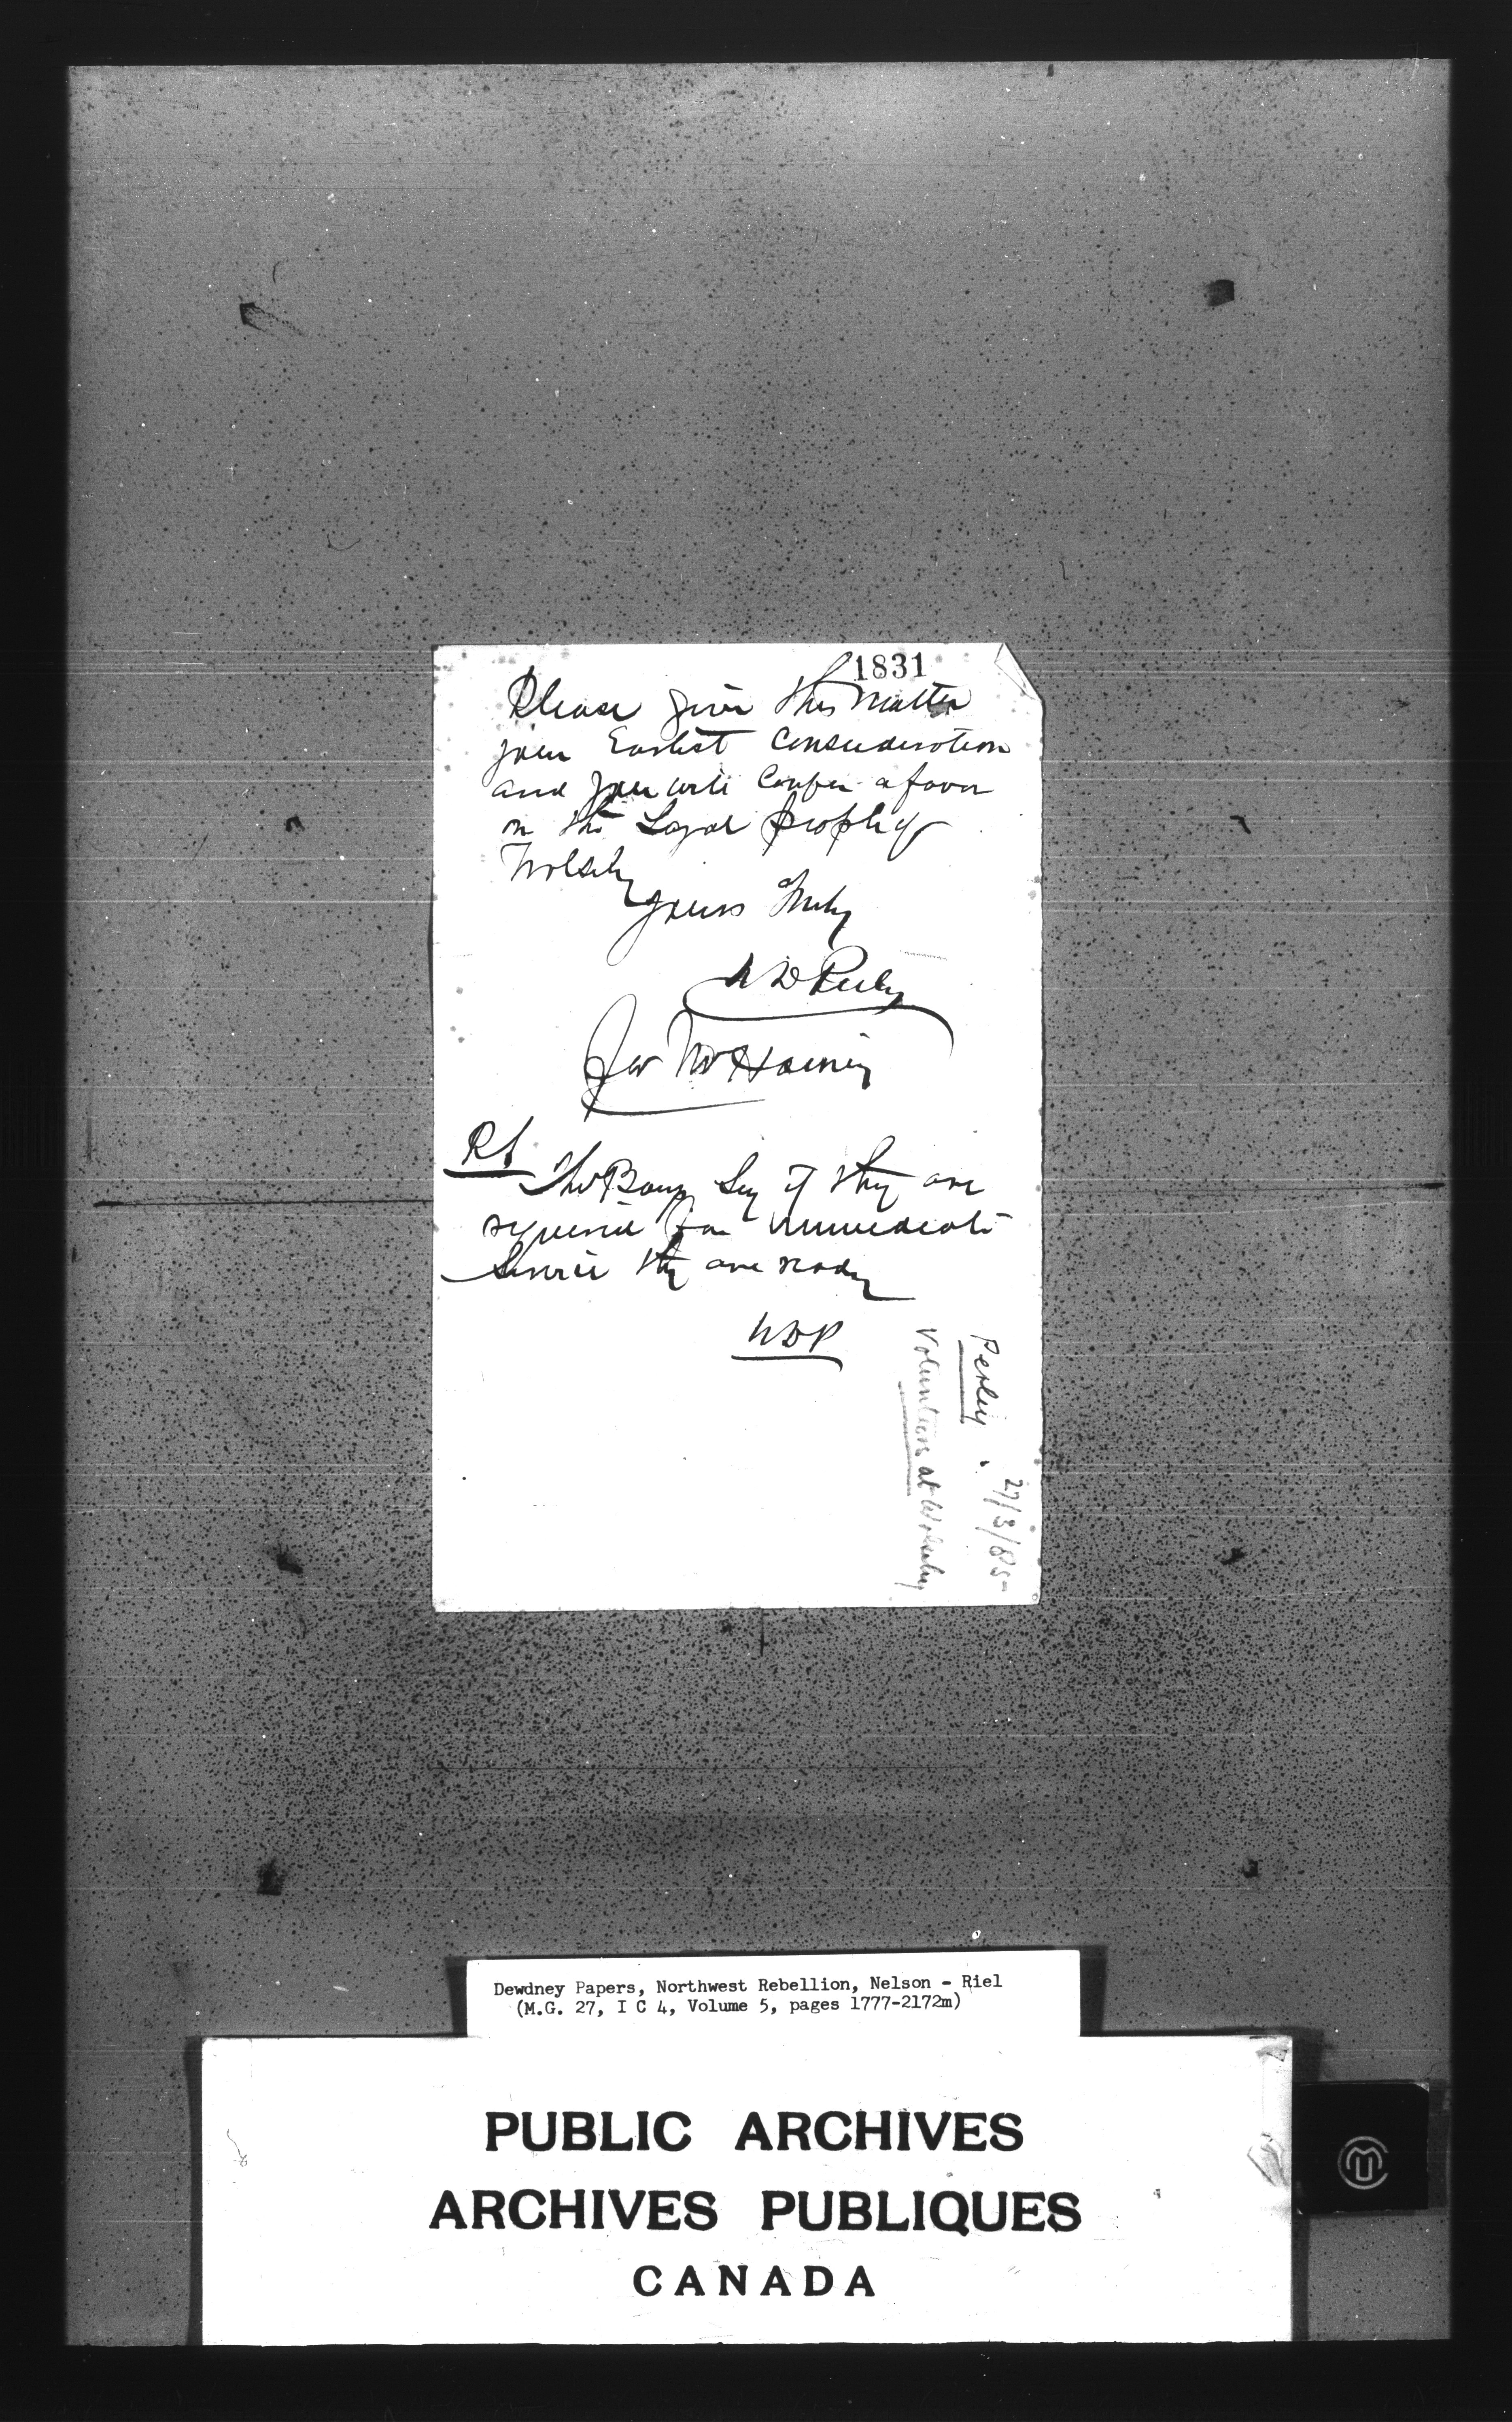 1831
Please give this matter
your Earliest Consideration
and you will Confer a favor
on the Loyal people of
Wolsely
yours Truly
W D Perley
PS
The Boys say if they are
required for immediate
Service they are ready
WDP
Perley
27/3/85-
Volunteers at Wolseley
Dewdney Papers, Northwest Rebellion, Nelson - Riel
(M.G. 27, I C 4, Volume 5, pages 1777-2172m)
PUBLIC ARCHIVES
ARCHIVES PUBLIQUES
CANADA